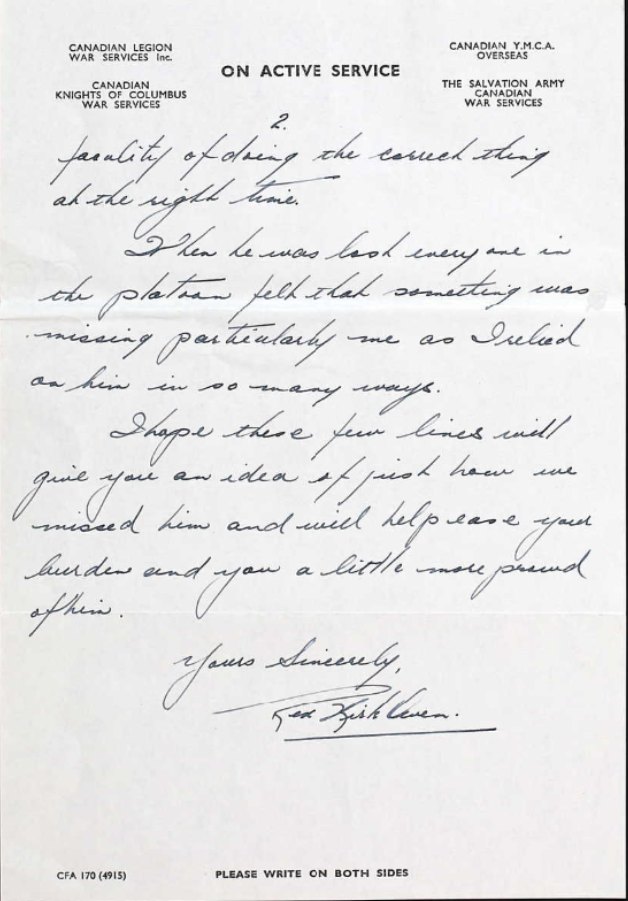 CANADIAN LEGION
WAR SERVICES Inc.
CANADIAN
KNIGHTS OF COLUMBUS
WAR SERVICES
ON ACTIVE SERVICE
CANADIAN Y.M.C.A.
OVERSEAS
THE SALVATION ARMY
CANADIAN
WAR SERVICES
2.
faculity of doing the correct thing
at the right time.
When he was lost everyone in
the platoon felt that something was
missing particularly me as I relied
on him in so many ways.
I hope these few lines will
give you an idea of just how we
missed him and will help ease your
burden and you a little more proud
of him.
Yours Sincerely,
CFA 170 (4915)
PLEASE WRITE ON BOTH SIDES